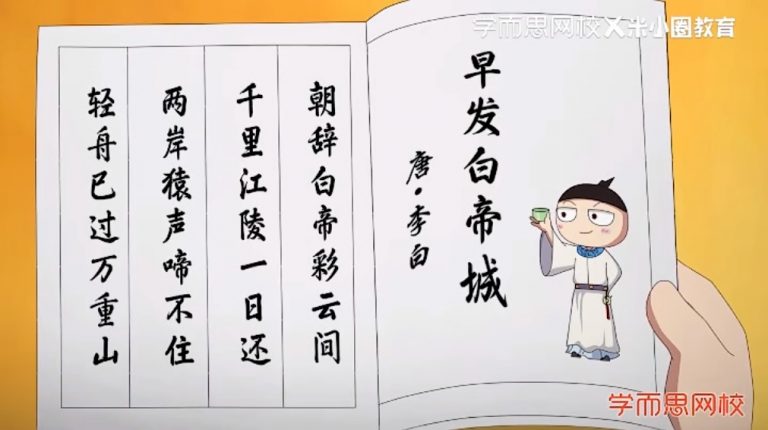 学而思网校X米小圈教育
早发白帝城
唐·李白
朝辞白帝彩云间
千里江陵一日还
两岸猿声啼不住
轻舟已过万重山
学而思网校